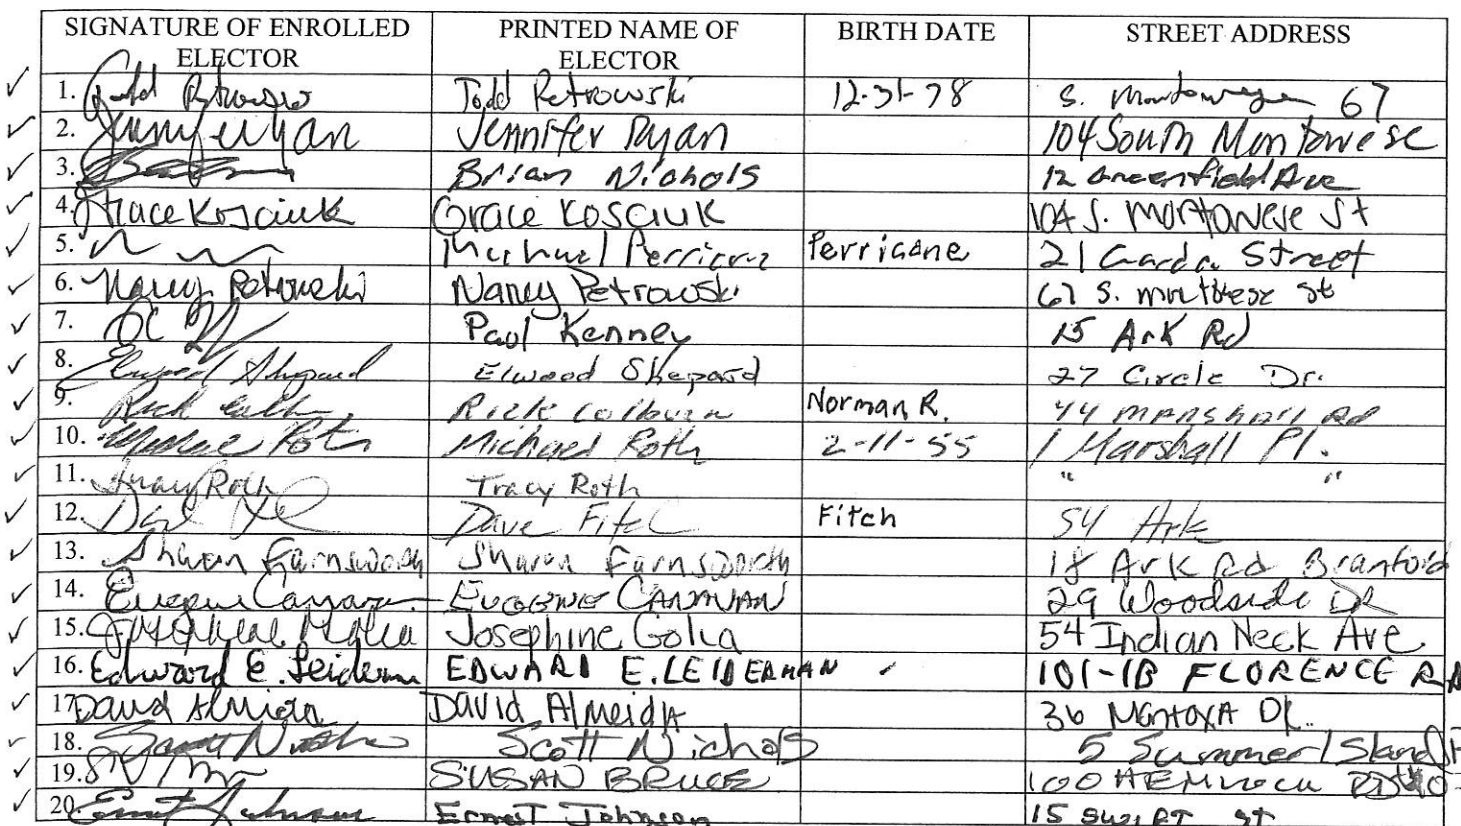 SIGNATURE OF ENROLLED ELECTOR PRINTED NAME OF ELECTOR BIRTH DATE STREET ADDRESS
1. Todd Petrowski Todd Petrowski 12-31-78 S. 67
2. Jennifer Ryan 104 South Montowese
3. Brian Nichols 12 Greenfield Ave
4. Grace Kosciuk Grace Kosciuk 104 S. Montowese St
5. Perricone Perricone 21 Street
6. Nancy Petrowski Nancy Petrowski 67 S. St
7. Paul Kenney 15 Ark Rd
8. Elwood Shepard Elwood Shepard 27 Circle Dr.
9. Rick Rick Colburn Norman R. 44 Marshall Rd
10. Michael Roth Michael Roth 2-11-55 1 Marshall Pl.
11. Tracy Roth Tracy Roth " "
12. Dave Fitch Fitch 54 Ark
13. Sharon Farnsworth Sharon Farnsworth 18 Ark Rd Branford
14. Eugene EUGENE 29 Woodside DR
15. Josephine Golia Josephine Golia 54 Indian Neck Ave
16. Edward E. Leiderman EDWARD E. LEIDERMAN 101-1B FLORENCE RD
17. David Almeida David Almeida 36 DR.
18. Scott Nichols 5 Summer Island
19. SUSAN BRUCE 100 HEMLOCK RD
20. Ernest Johnson Ernest Johnson 15 SWIFT St